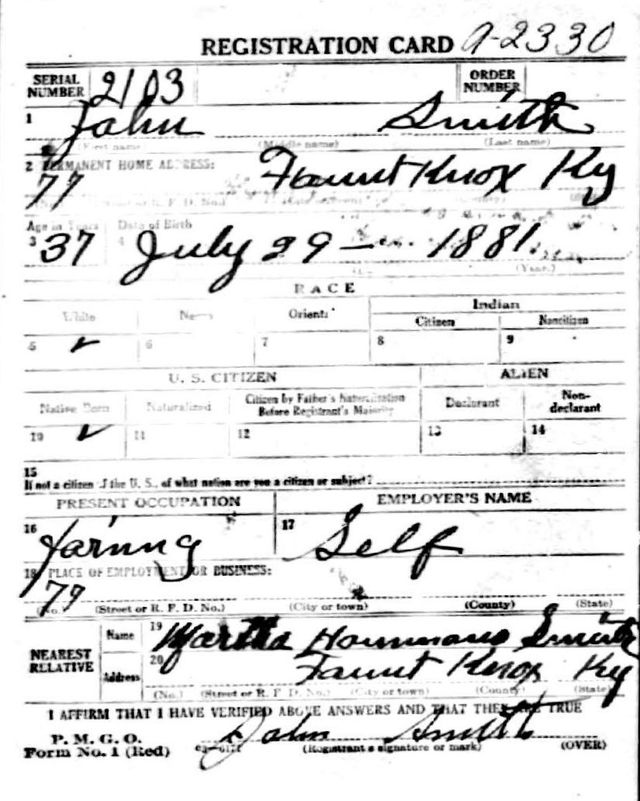 REGISTRATION CARD A-2330
SERIAL NUMBER 2103 ORDER NUMBER
1 John Smith
(First name) (Middle name) (Last name)
2 PERMANENT HOME ADDRESS:
77 Faunt Knox Ky
(No.) (Street or R. F. D. No.) (City or town) (County) (State)
Age in Years Date of Birth
3 37 4 July 29 - 1881
(Year.)
RACE
White Negro Oriental Indian
Citizen Noncitizen
5 ✓ 6 7 8 9
U. S. CITIZEN ALIEN
Native Born Naturalized Citizen by Father's Naturalization Before Registrant's Majority Declarant Non-declarant
10 ✓ 11 12 13 14
15
If not a citizen of the U. S., of what nation are you a citizen or subject?
PRESENT OCCUPATION EMPLOYER'S NAME
16 Farming 17 Self
18 PLACE OF EMPLOYMENT OR BUSINESS:
77
(No.) (Street or R. F. D. No.) (City or town) (County) (State)
NEAREST RELATIVE Name 19 Martha Smith
Address 20 Faunt Knox Ky
(No.) (Street or R. F. D. No.) (City or town) (County) (State)
I AFFIRM THAT I HAVE VERIFIED ABOVE ANSWERS AND THAT THEY ARE TRUE
P. M. G. O.
Form No. 1 (Red) John Smith
(Registrant's signature or mark) (OVER)